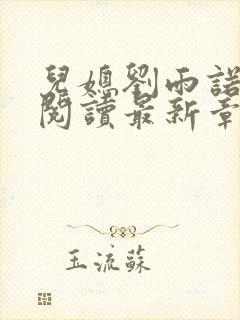 兒媳劉雨諾
閱讀最新章
玉流蘇